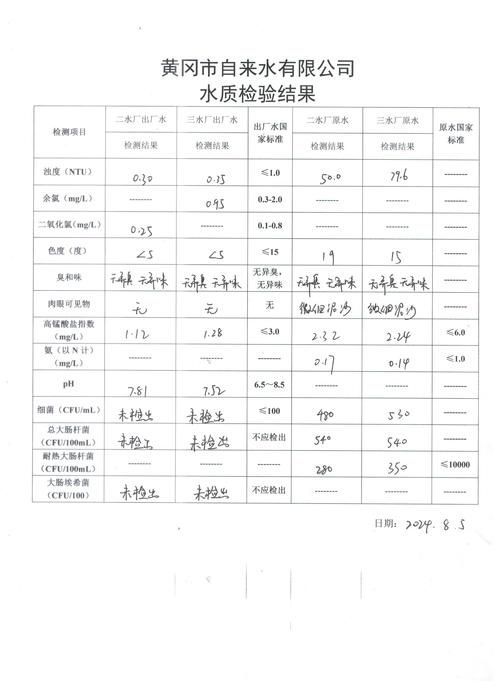 黄冈市自来水有限公司
水质检验结果
检测项目 二水厂出厂水 三水厂出厂水 出厂水国家标准 二水厂原水 三水厂原水 原水国家标准
检测结果 检测结果 检测结果 检测结果
浊度（NTU） 0.30 0.35 ≤1.0 50.0 79.6 --------
余氯（mg/L） -------- 0.45 0.3-2.0 -------- -------- --------
二氧化氯(mg/L) 0.25 -------- 0.1-0.8 -------- -------- --------
色度（度） <5 <5 ≤15 19 15 --------
臭和味 无异臭 无异味 无异臭 无异味 无异臭，无异味 无异臭 无异味 无异臭 无异味 --------
肉眼可见物 无 无 无 微细泥沙 微细泥沙 --------
高锰酸盐指数（mg/L） 1.12 1.28 ≤3.0 2.32 2.24 ≤6.0
氨（以 N 计）（mg/L） -------- -------- -------- 0.17 0.14 ≤1.0
pH 7.81 7.52 6.5～8.5 -------- -------- --------
细菌（CFU/mL） 未检出 未检出 ≤100 480 530 --------
总大肠杆菌（CFU/100mL） 未检出 未检出 不应检出 540 540 --------
耐热大肠杆菌（CFU/100mL） -------- -------- -------- 280 350 ≤10000
大肠埃希菌（CFU/100） 未检出 未检出 不应检出 -------- -------- --------
日期：2024.8.5